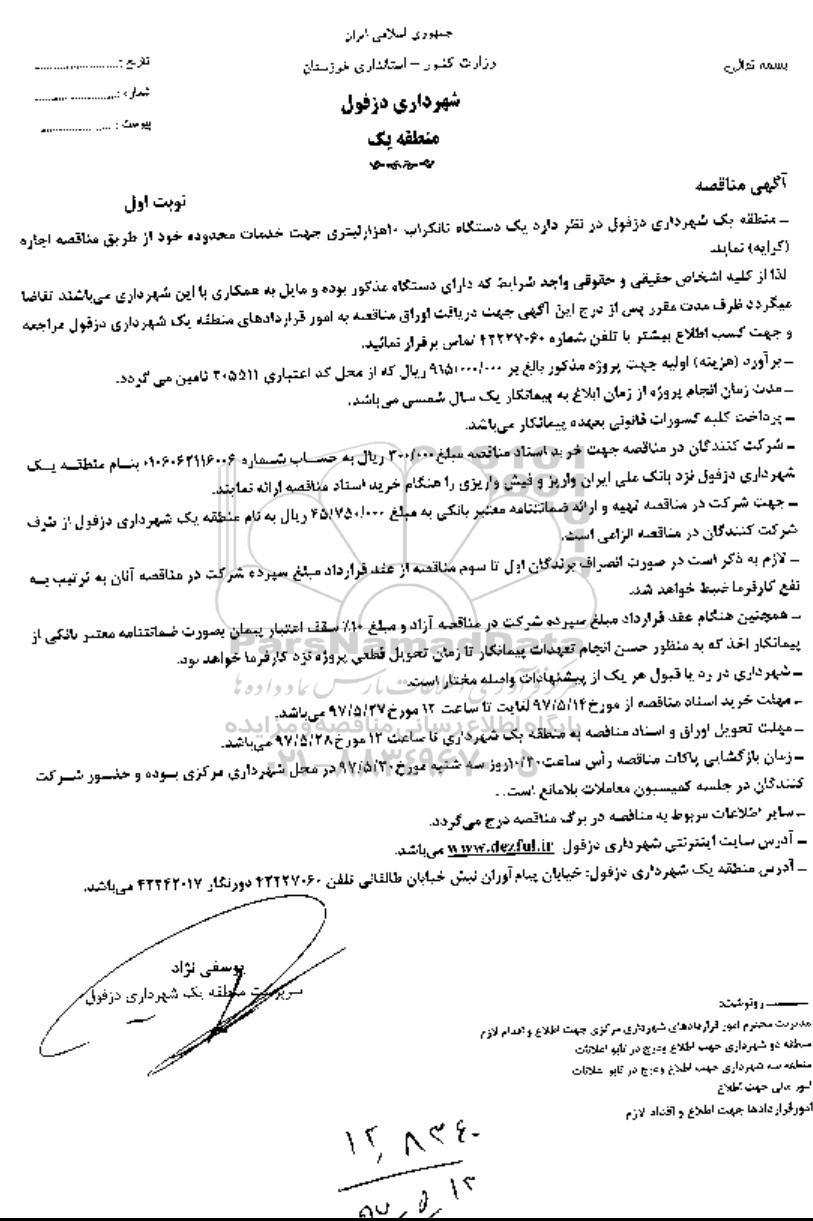 جمهوری اسلامی ایران
بسمه تعالی
وزارت کشور – استانداری خوزستان
تاریخ :
شهرداری دزفول
شماره :
منطقه یک
پیوست :
آگهی مناقصه
نوبت اول
– منطقه یک شهرداری دزفول در نظر دارد یک دستگاه تانکراب ۱۰هزارلیتری جهت خدمات محدوده خود از طریق مناقصه اجاره
(کرایه) نماید.
لذا از کلیه اشخاص حقیقی و حقوقی واجد شرایط که دارای دستگاه مذکور بوده و مایل به همکاری با این شهرداری می‌باشند تقاضا
میگردد ظرف مدت مقرر پس از درج این آگهی جهت دریافت اوراق مناقصه به امور قراردادهای منطقه یک شهرداری دزفول مراجعه
و جهت کسب اطلاع بیشتر با تلفن شماره ۴۲۲۲۷۰۶۰ تماس برقرار نمائید.
– برآورد (هزینه) اولیه جهت پروژه مذکور بالغ بر ریال که از محل کد اعتباری ۳۰۵۵۱۱ تامین می گردد.
– مدت زمان انجام پروژه از زمان ابلاغ به پیمانکار یک سال شمسی می‌باشد.
– پرداخت کلیه کسورات قانونی بعهده پیمانکار می‌باشد.
– شرکت کنندگان در مناقصه جهت خرید اسناد مناقصه مبلغ ۳۰۰/۰۰۰ ریال به حساب شماره بنام منطقه یک
شهرداری دزفول نزد بانک ملی ایران واریز و فیش واریزی را هنگام خرید اسناد مناقصه ارائه نمایند.
– جهت شرکت در مناقصه تهیه و ارائه ضمانتنامه معتبر بانکی به مبلغ ۴۵/۷۵۰/۰۰۰ ریال به نام منطقه یک شهرداری دزفول از طرف
شرکت کنندگان در مناقصه الزامی است.
– لازم به ذکر است در صورت انصراف برندگان اول تا سوم مناقصه از عقد قرارداد مبلغ سپرده شرکت در مناقصه آنان به ترتیب به
نفع کارفرما ضبط خواهد شد.
– همچنین هنگام عقد قرارداد مبلغ سپرده شرکت در مناقصه آزاد و مبلغ ۱۰٪ سقف اعتبار پیمان بصورت ضمانتنامه معتبر بانکی از
پیمانکار اخذ که به منظور حسن انجام تعهدات پیمانکار تا زمان تحویل قطعی پروژه نزد کارفرما خواهد بود.
– شهرداری در رد یا قبول هر یک از پیشنهادات واصله مختار است.
– مهلت خرید اسناد مناقصه از مورخ ۹۷/۵/۱۴ لغایت تا ساعت ۱۲ مورخ ۹۷/۵/۲۷ می‌باشد.
– مهلت تحویل اوراق و اسناد مناقصه به منطقه یک شهرداری تا ساعت ۱۲ مورخ ۹۷/۵/۲۸ می‌باشد.
– زمان بازگشایی پاکات مناقصه رأس ساعت ۱۰/۳۰ روز سه شنبه مورخ ۹۷/۵/۳۰ در محل شهرداری مرکزی بوده و حضور شرکت
کنندگان در جلسه کمیسیون معاملات بلامانع است.
– سایر اطلاعات مربوط به مناقصه در برگ مناقصه درج می‌گردد.
– آدرس سایت اینترنتی شهرداری دزفول www.dezful.ir می‌باشد.
– آدرس منطقه یک شهرداری دزفول: خیابان پیام آوران نبش خیابان طالقانی تلفن ۴۲۲۲۷۰۶۰ دورنگار ۴۲۲۴۲۰۱۷ می‌باشد.
ParsNamadData
مرکز فرآوری اطلاعات پارس نماد داده ها
پایگاه اطلاع رسانی مناقصه و مزایده
۰۲۱-۸۸۳۴۹۶۷۰-۵
یوسفی نژاد
سرپرست منطقه یک شهرداری دزفول
رونوشت:
مدیریت محترم امور قراردادهای شهرداری مرکزی جهت اطلاع و اقدام لازم
منطقه دو شهرداری جهت اطلاع ودرج در تابلو اعلانات
منطقه سه شهرداری جهت اطلاع ودرج در تابلو اعلانات
امور مالی جهت اطلاع
امورقراردادها جهت اطلاع و اقدام لازم
۱۲,۸۳۶۰
۹۷_۵_۱۳